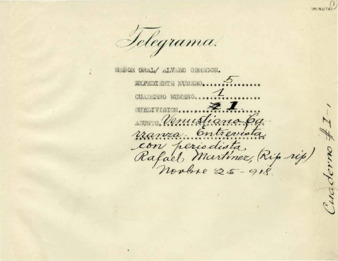 Telegrama.
SEÑOR GRAL/ ALVARO OBREGON.
EXPEDIENTE NUMERO......5
CUADERNO NUMERO......1
SUBDIVISION......1.
ASUNTO. Venustiano Ca
rranza. Entrevista
con periodista
Rafael Martínez, (Rip-rip)
Novbre 25-918.
Cuaderno # I-1